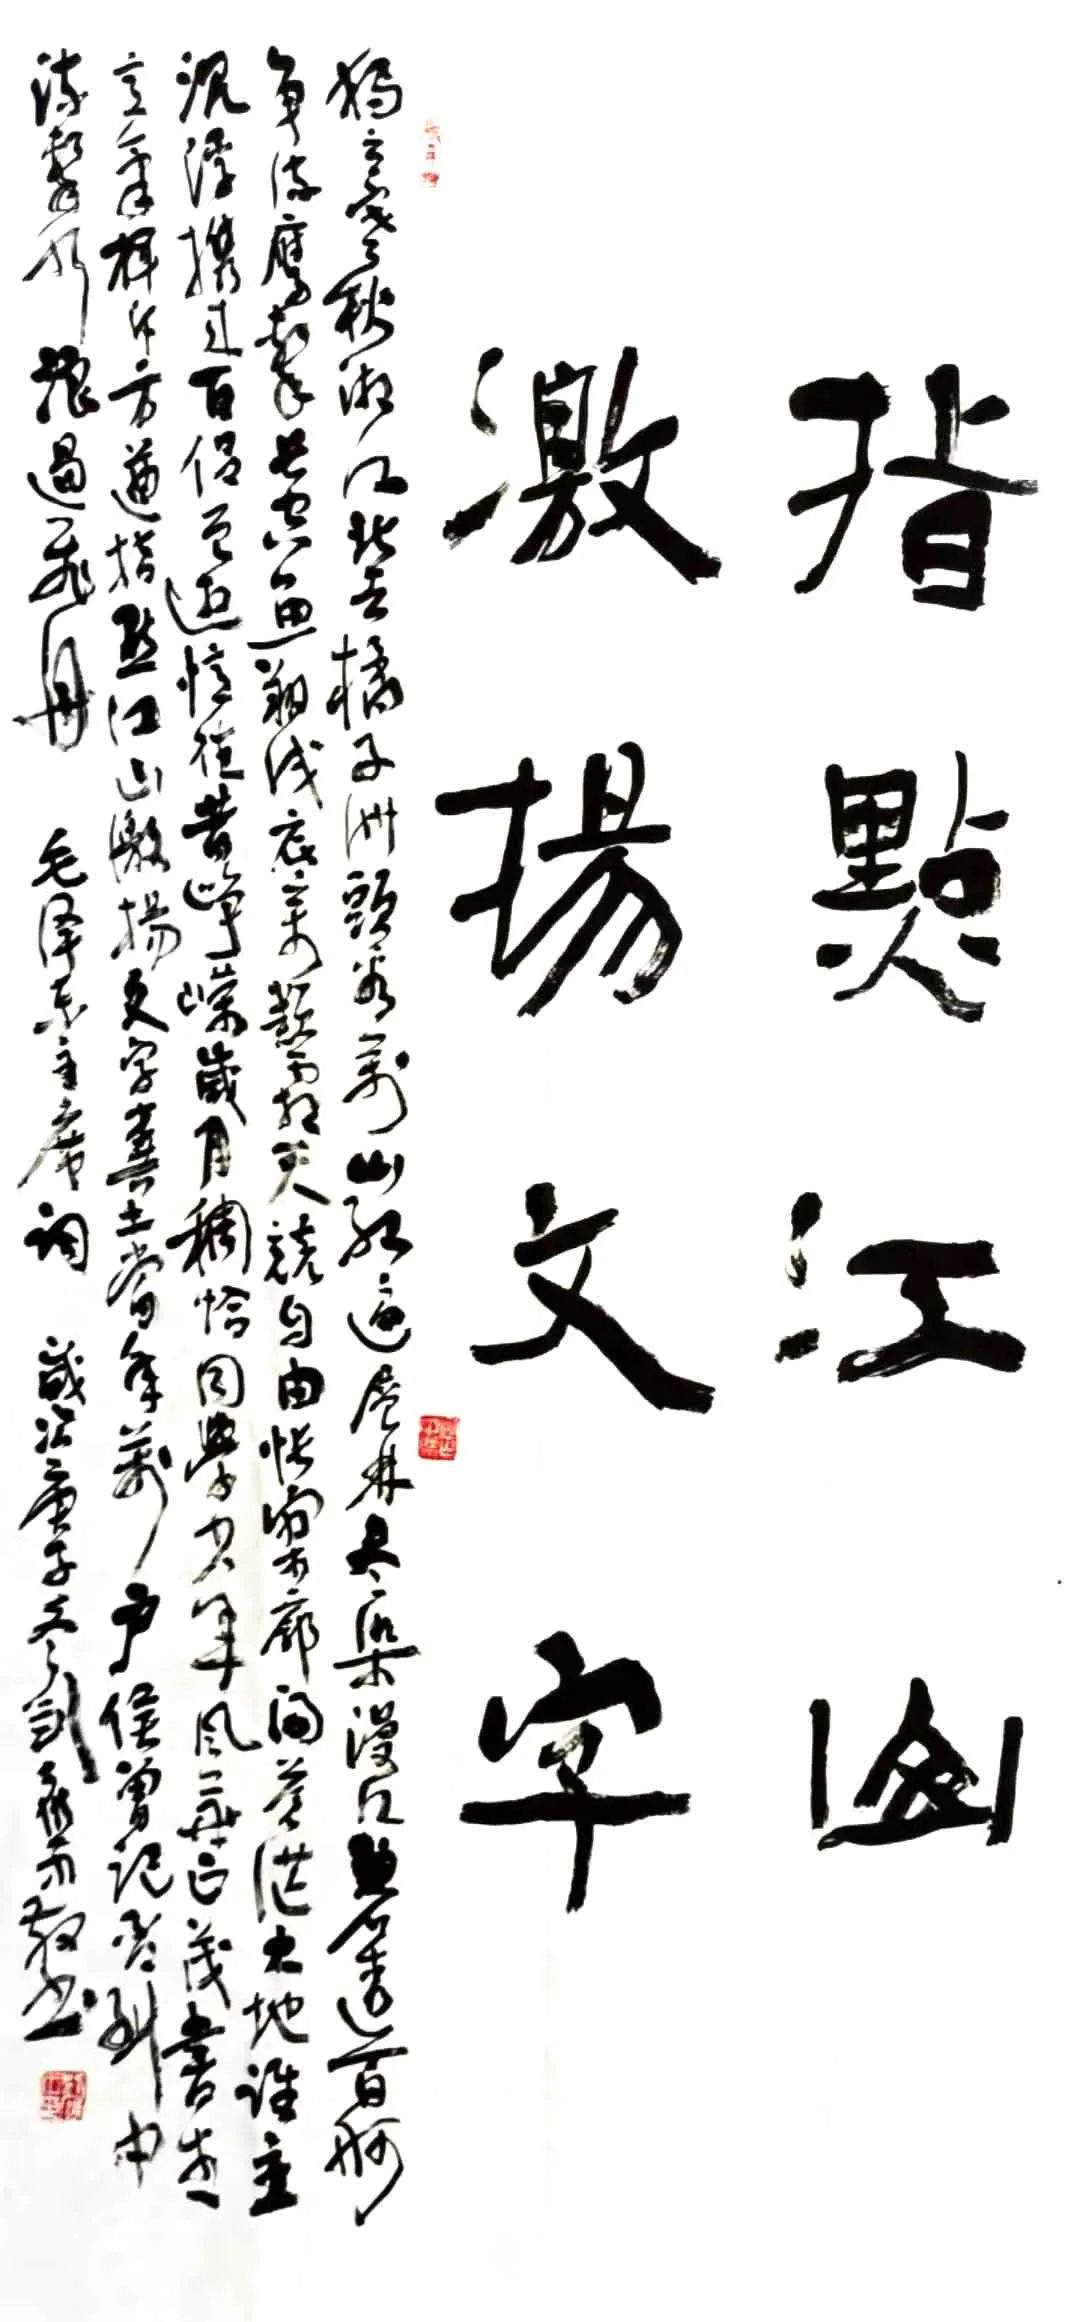 指點江山
激揚文字
獨立寒秋湘江北去橘子洲頭看萬山紅遍層林盡染漫江碧透百舸
爭流鷹擊長空魚翔淺底萬類霜天競自由悵寥廓問蒼茫大地誰主
沉浮攜來百侶曾遊憶往昔崢嶸歲月稠恰同學少年風華正茂書生
意氣揮斥方遒指點江山激揚文字糞土當年萬戶侯曾記否到中
流擊水浪遏飛舟 毛泽东主席词 歲次庚子冬